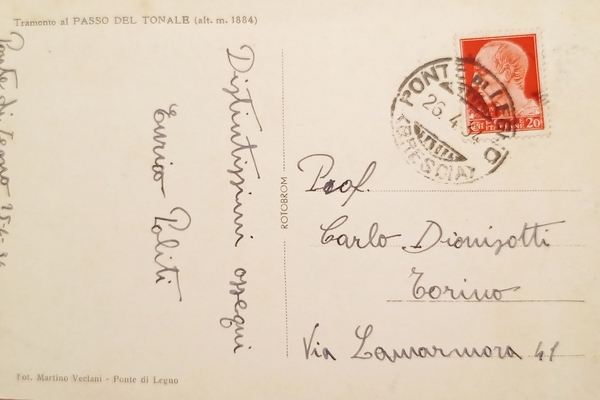 Tramonto al PASSO DEL TONALE (alt. m. 1884)
Ponte di Legno 25-4-34
Distintissimi ossequi
Enrico Politi
ROTOBROM
PONTE DI LEGNO
26.4.34
(BRESCIA)
20
Prof.
Carlo Dionisotti
Torino
Via Lamarmora 41
Fot. Martino Veclani - Ponte di Legno